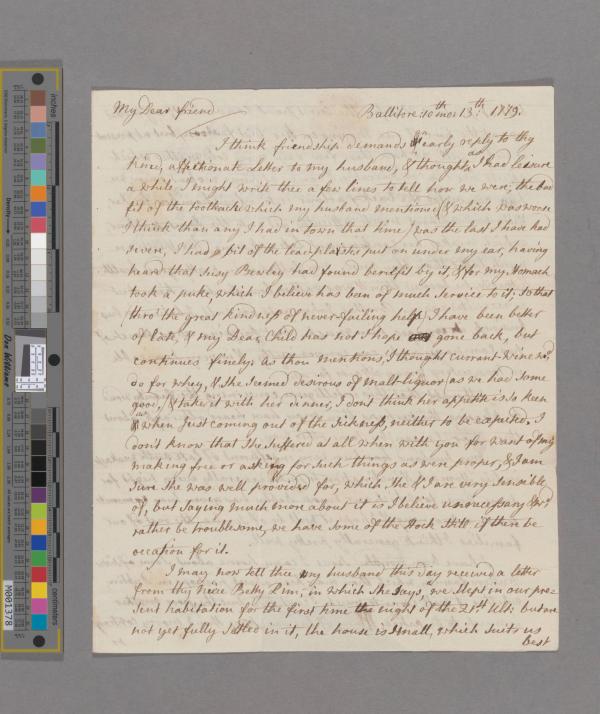 My Dear friend
Ballitore 10th mo: 13th 1779.
I think friendship demands an early reply to thy
kind, affectionate Letter to my husband, & thought as I had leisure
a while I might write thee a few lines to tell how we were; the bad
fit of the toothache which my husband mentioned (& which was worse
I think than any I had in town that time) was the last I have had
severe, I had a bit of the lead-plaister put on under my ear, having
heard that Susy Bewley had found benefit by it, & for my stomach
took a puke, which I believe has been of much service to it; so that
thro' the great kindness of never-failing help, I have been better
of late, & my Dear Child has not I hope gone back, but
continues finely: as thou mentions, I thought currant-wine wd.
do for whey, & she seemed desirous of malt-liquor (as we had some
good,) & takes it with her dinner, I don't think her appetite is so keen
as when just coming out of the sickness, neither to be expected. I
don't know that she suffered at all when with you for want of my
making free or asking for such things as were proper, & I am
sure she was well provided for, which she & I are very sensible
of, but saying much more about it is I believe unnecessary & wd.
rather be troublesome, we have some of the Hock still if there be
occasion for it.
I may now tell thee my husband this day received a letter
from thy niece Betty Pim, in which she says, "we slept in our pre-
sent habitation for the first time the night of the 21st Ult: but are
not yet fully settled in it, the house is small, which suits us
best
inches
centimeters
Density
Don Williams
M001378